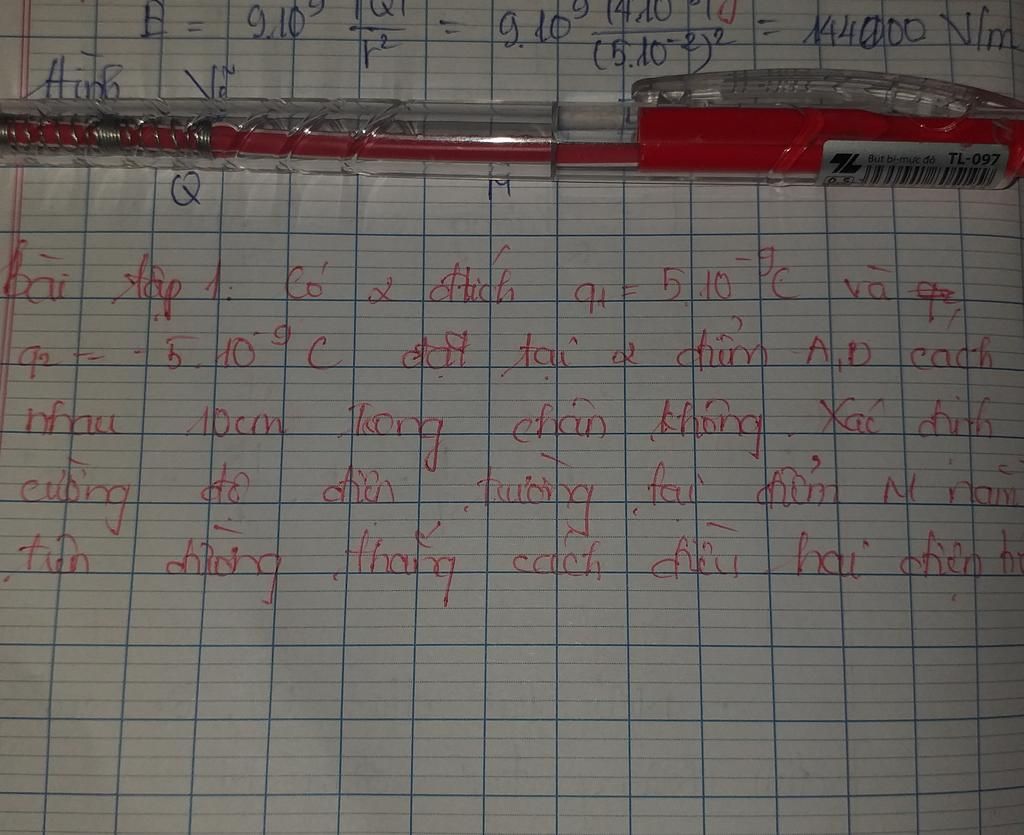 E = 9.10⁹ |Q|/r² = 9.10⁹ |4.10 |/(5.10⁻²)² = 144000 V/m
Hình Vẽ
TL Bút bi-mực đỏ TL-097
Q M
Bài tập 1. Có 2 đtích q₁ = 5.10⁻⁹C và
q₂ = -5.10⁻⁹ C đặt tại 2 điểm A,D cách
nhau 10cm trong chân không. Xác định
cường độ điện trường tại điểm M nằm
trên đường thẳng cách đều hai điện